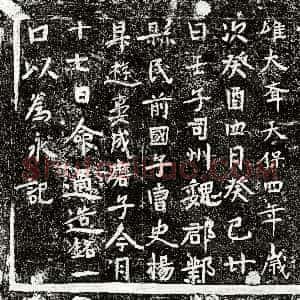 維大齊天保四年歲
次癸酉四月癸巳廿
日壬子司州魏郡鄴
縣民前國子曹史楊
昇遊妻成磨子今月
十七日命過造銘一
口以為永記